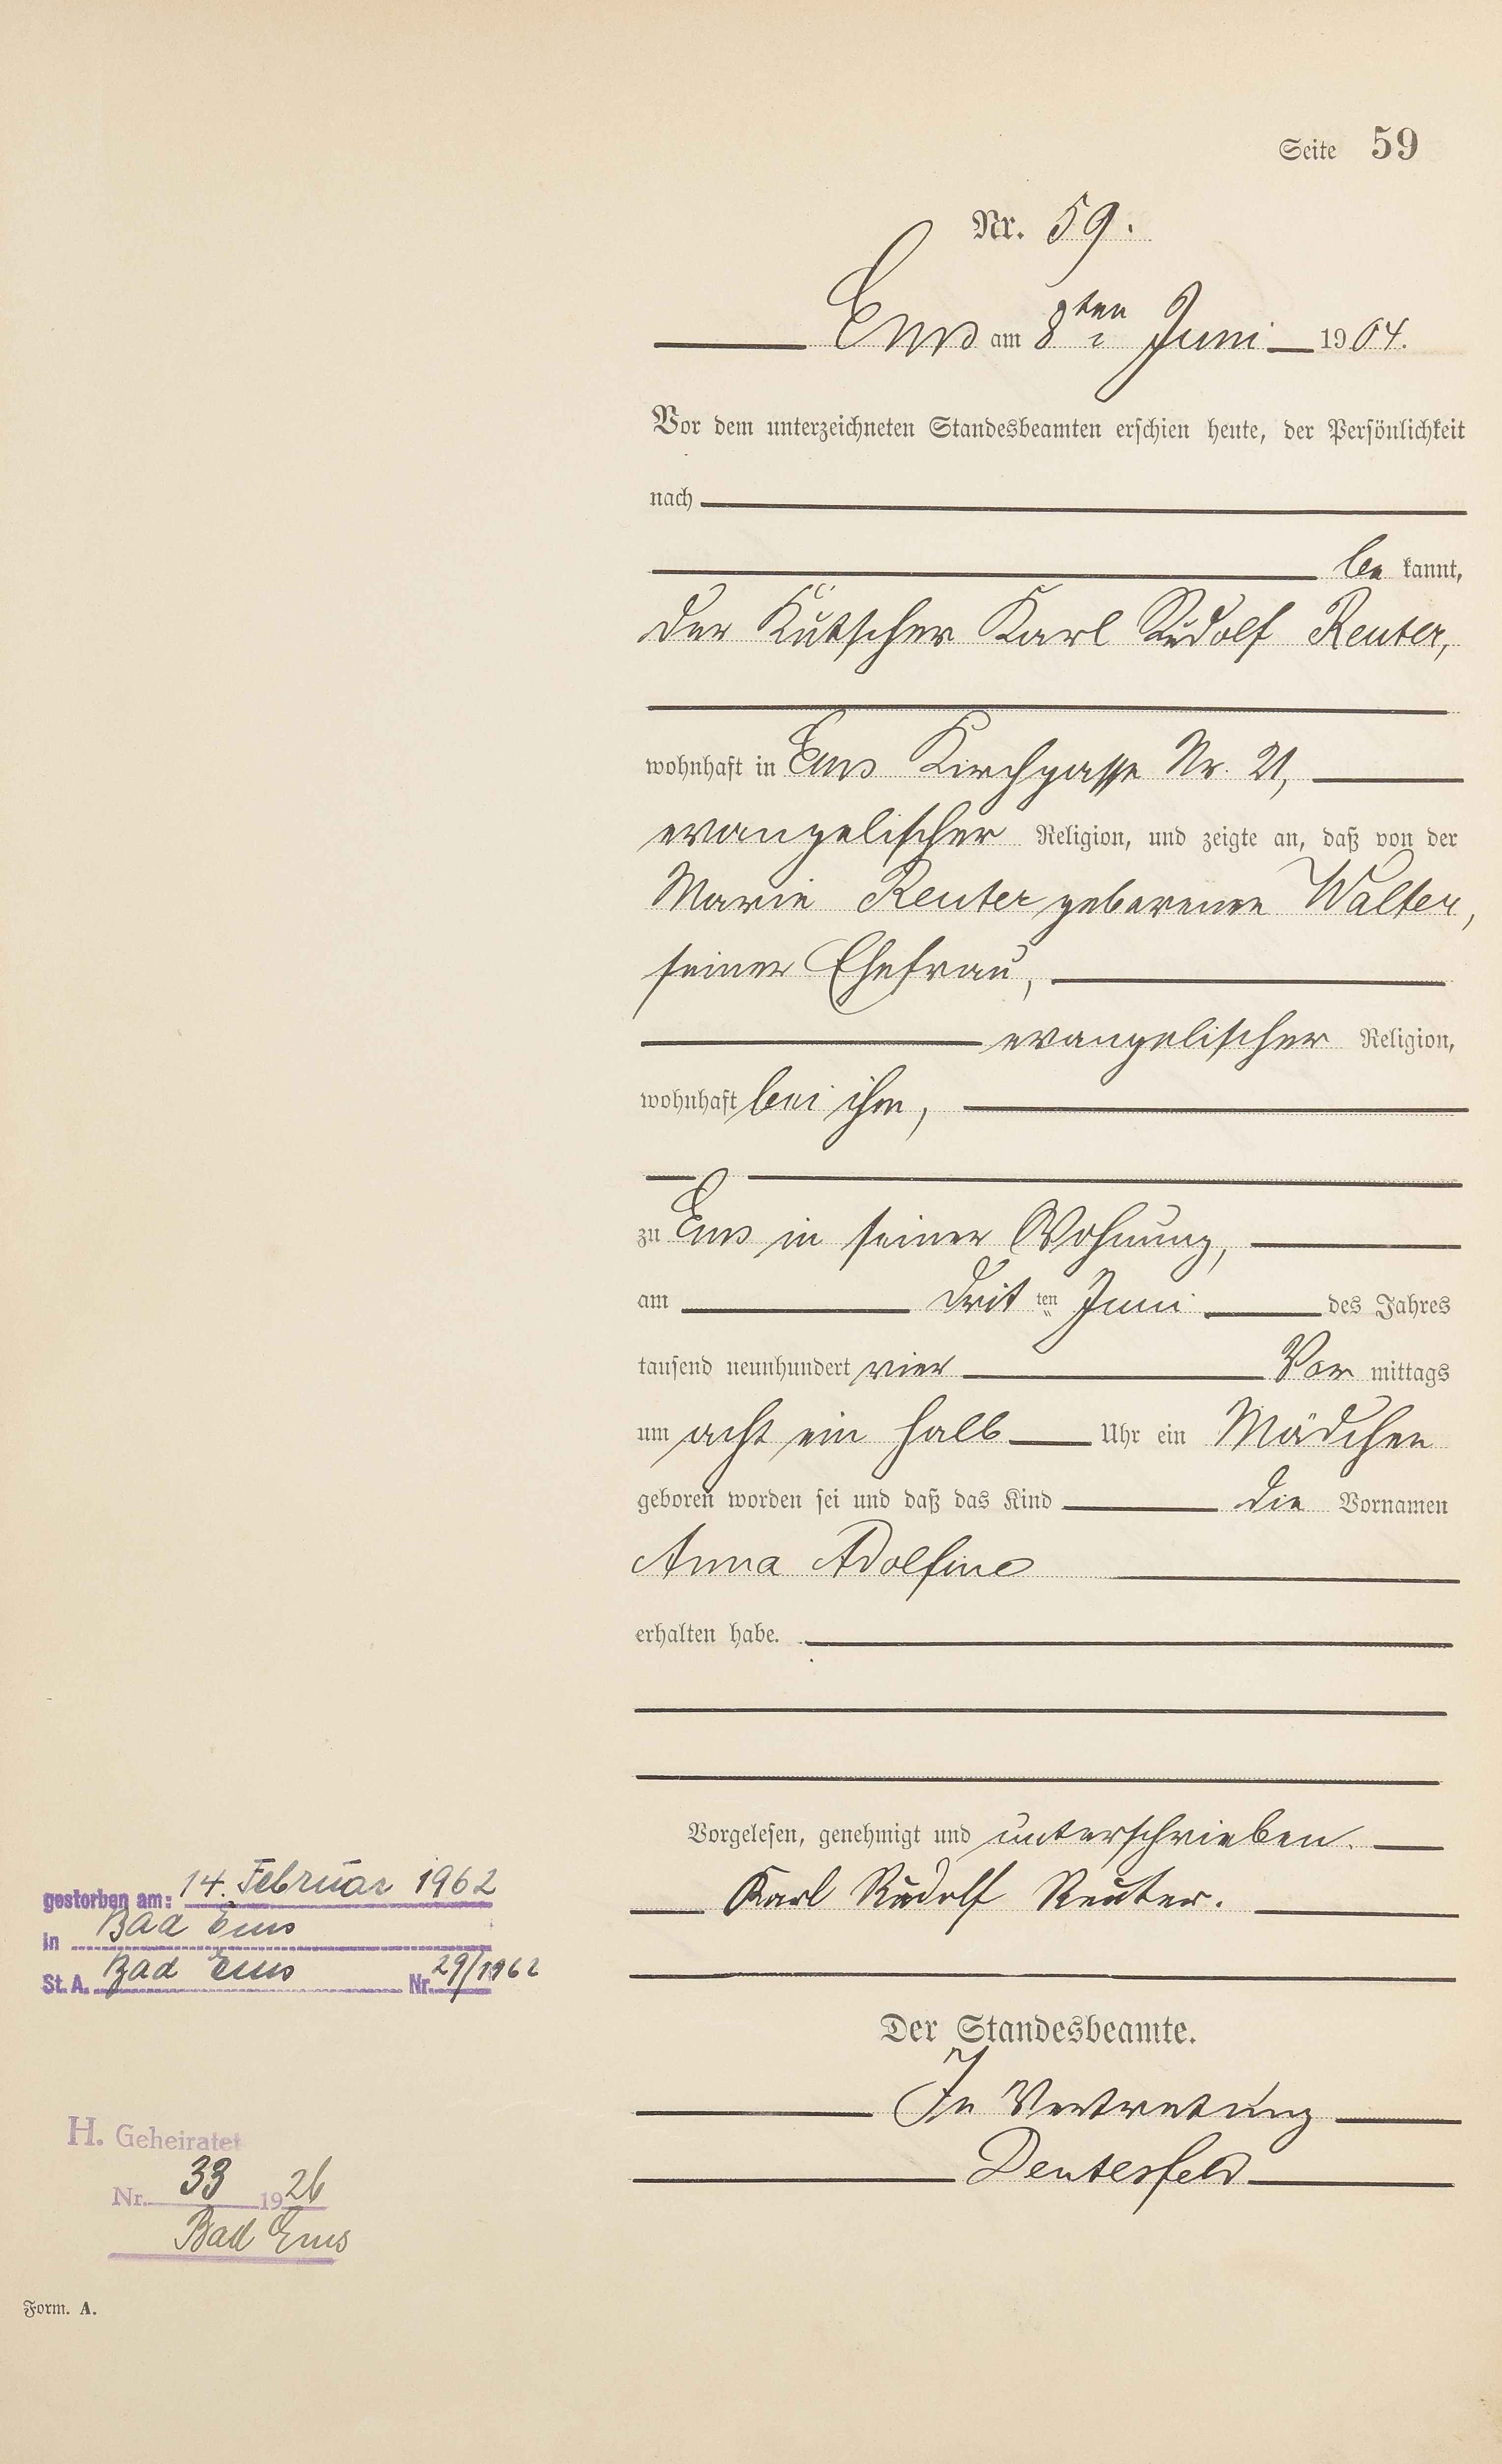 Seite 59
Nr. 59.
Ems am 8ten Juni 1904.
Vor dem unterzeichneten Standesbeamten erschien heute, der Persönlichkeit
nach
be kannt,
der Kutscher Karl Rudolf Reuter,
wohnhaft in Ems Kirchgasse Nr. 21,
evangelischer Religion, und zeigte an, daß von der
Marie Reuter geborenen Walter,
seiner Ehefrau,
evangelischer Religion,
wohnhaft bei ihm,
zu Ems in seiner Wohnung,
am drit ten Juni des Jahres
tausend neunhundert vier Vor mittags
um acht ein halb Uhr ein Mädchen
geboren worden sei und daß das Kind die Vornamen
Anna Adolfine
erhalten habe.
Vorgelesen, genehmigt und unterschrieben.
Karl Rudolf Reuter.
Der Standesbeamte.
In Vertretung
gestorben am: 14. Februar 1962
in Bad Ems
St. A. Bad Ems Nr. 29/1962
H. Geheiratet
Nr. 33 1926
Bad Ems
Form. A.